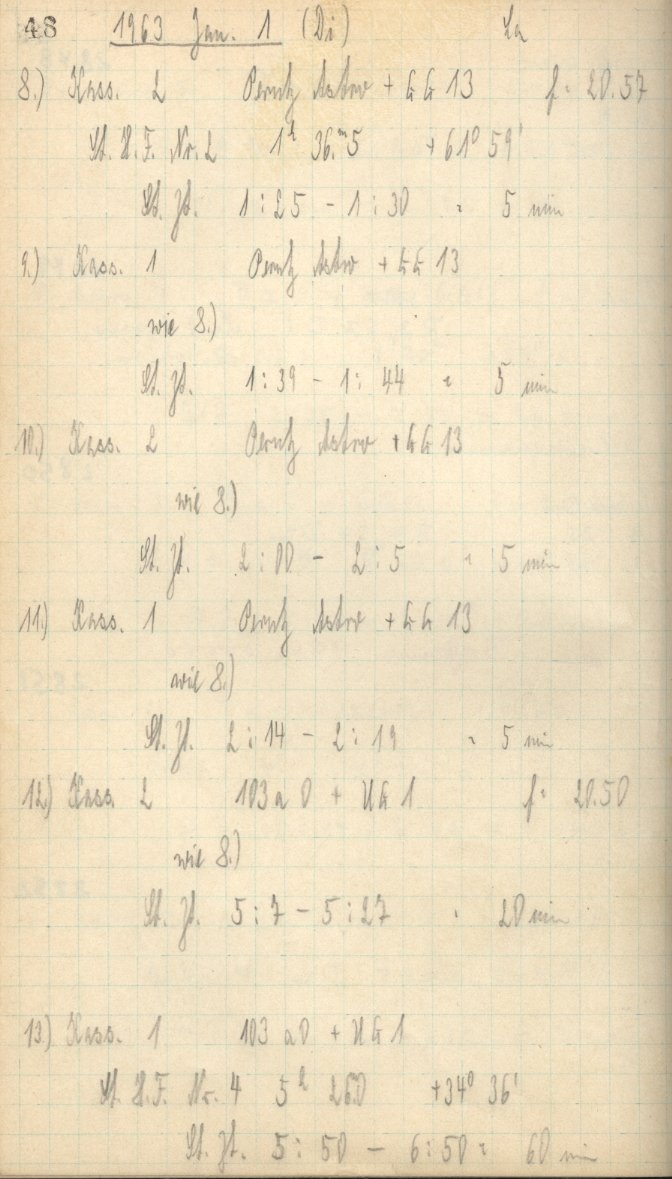 48 1963 Jan. 1 (Di) La
8.) Kass. 2 Perutz Astro + GG 13 f = 20.57
St. H.F. Nr. 2 1h 36.m5 +61° 59'
St. Zt. 1:25 - 1:30 = 5 min
9.) Kass. 1 Perutz Astro + GG 13
wie 8.)
St. Zt. 1:39 - 1:44 = 5 min
10.) Kass. 2 Perutz Astro + GG 13
wie 8.)
St. Zt. 2:00 - 2:5 = 5 min
11.) Kass. 1 Perutz Astro + GG 13
wie 8.)
St. Zt. 2:14 - 2:19 = 5 min
12.) Kass 2 103 a O + UG 1 f = 20.50
wie 8.)
St. Zt. 5:7 - 5:27 = 20 min
13.) Kass. 1 103 a O + UG 1
St. H.F. Nr. 4 5h 26m0 +34° 36'
St. Zt. 5:50 - 6:50 = 60 min